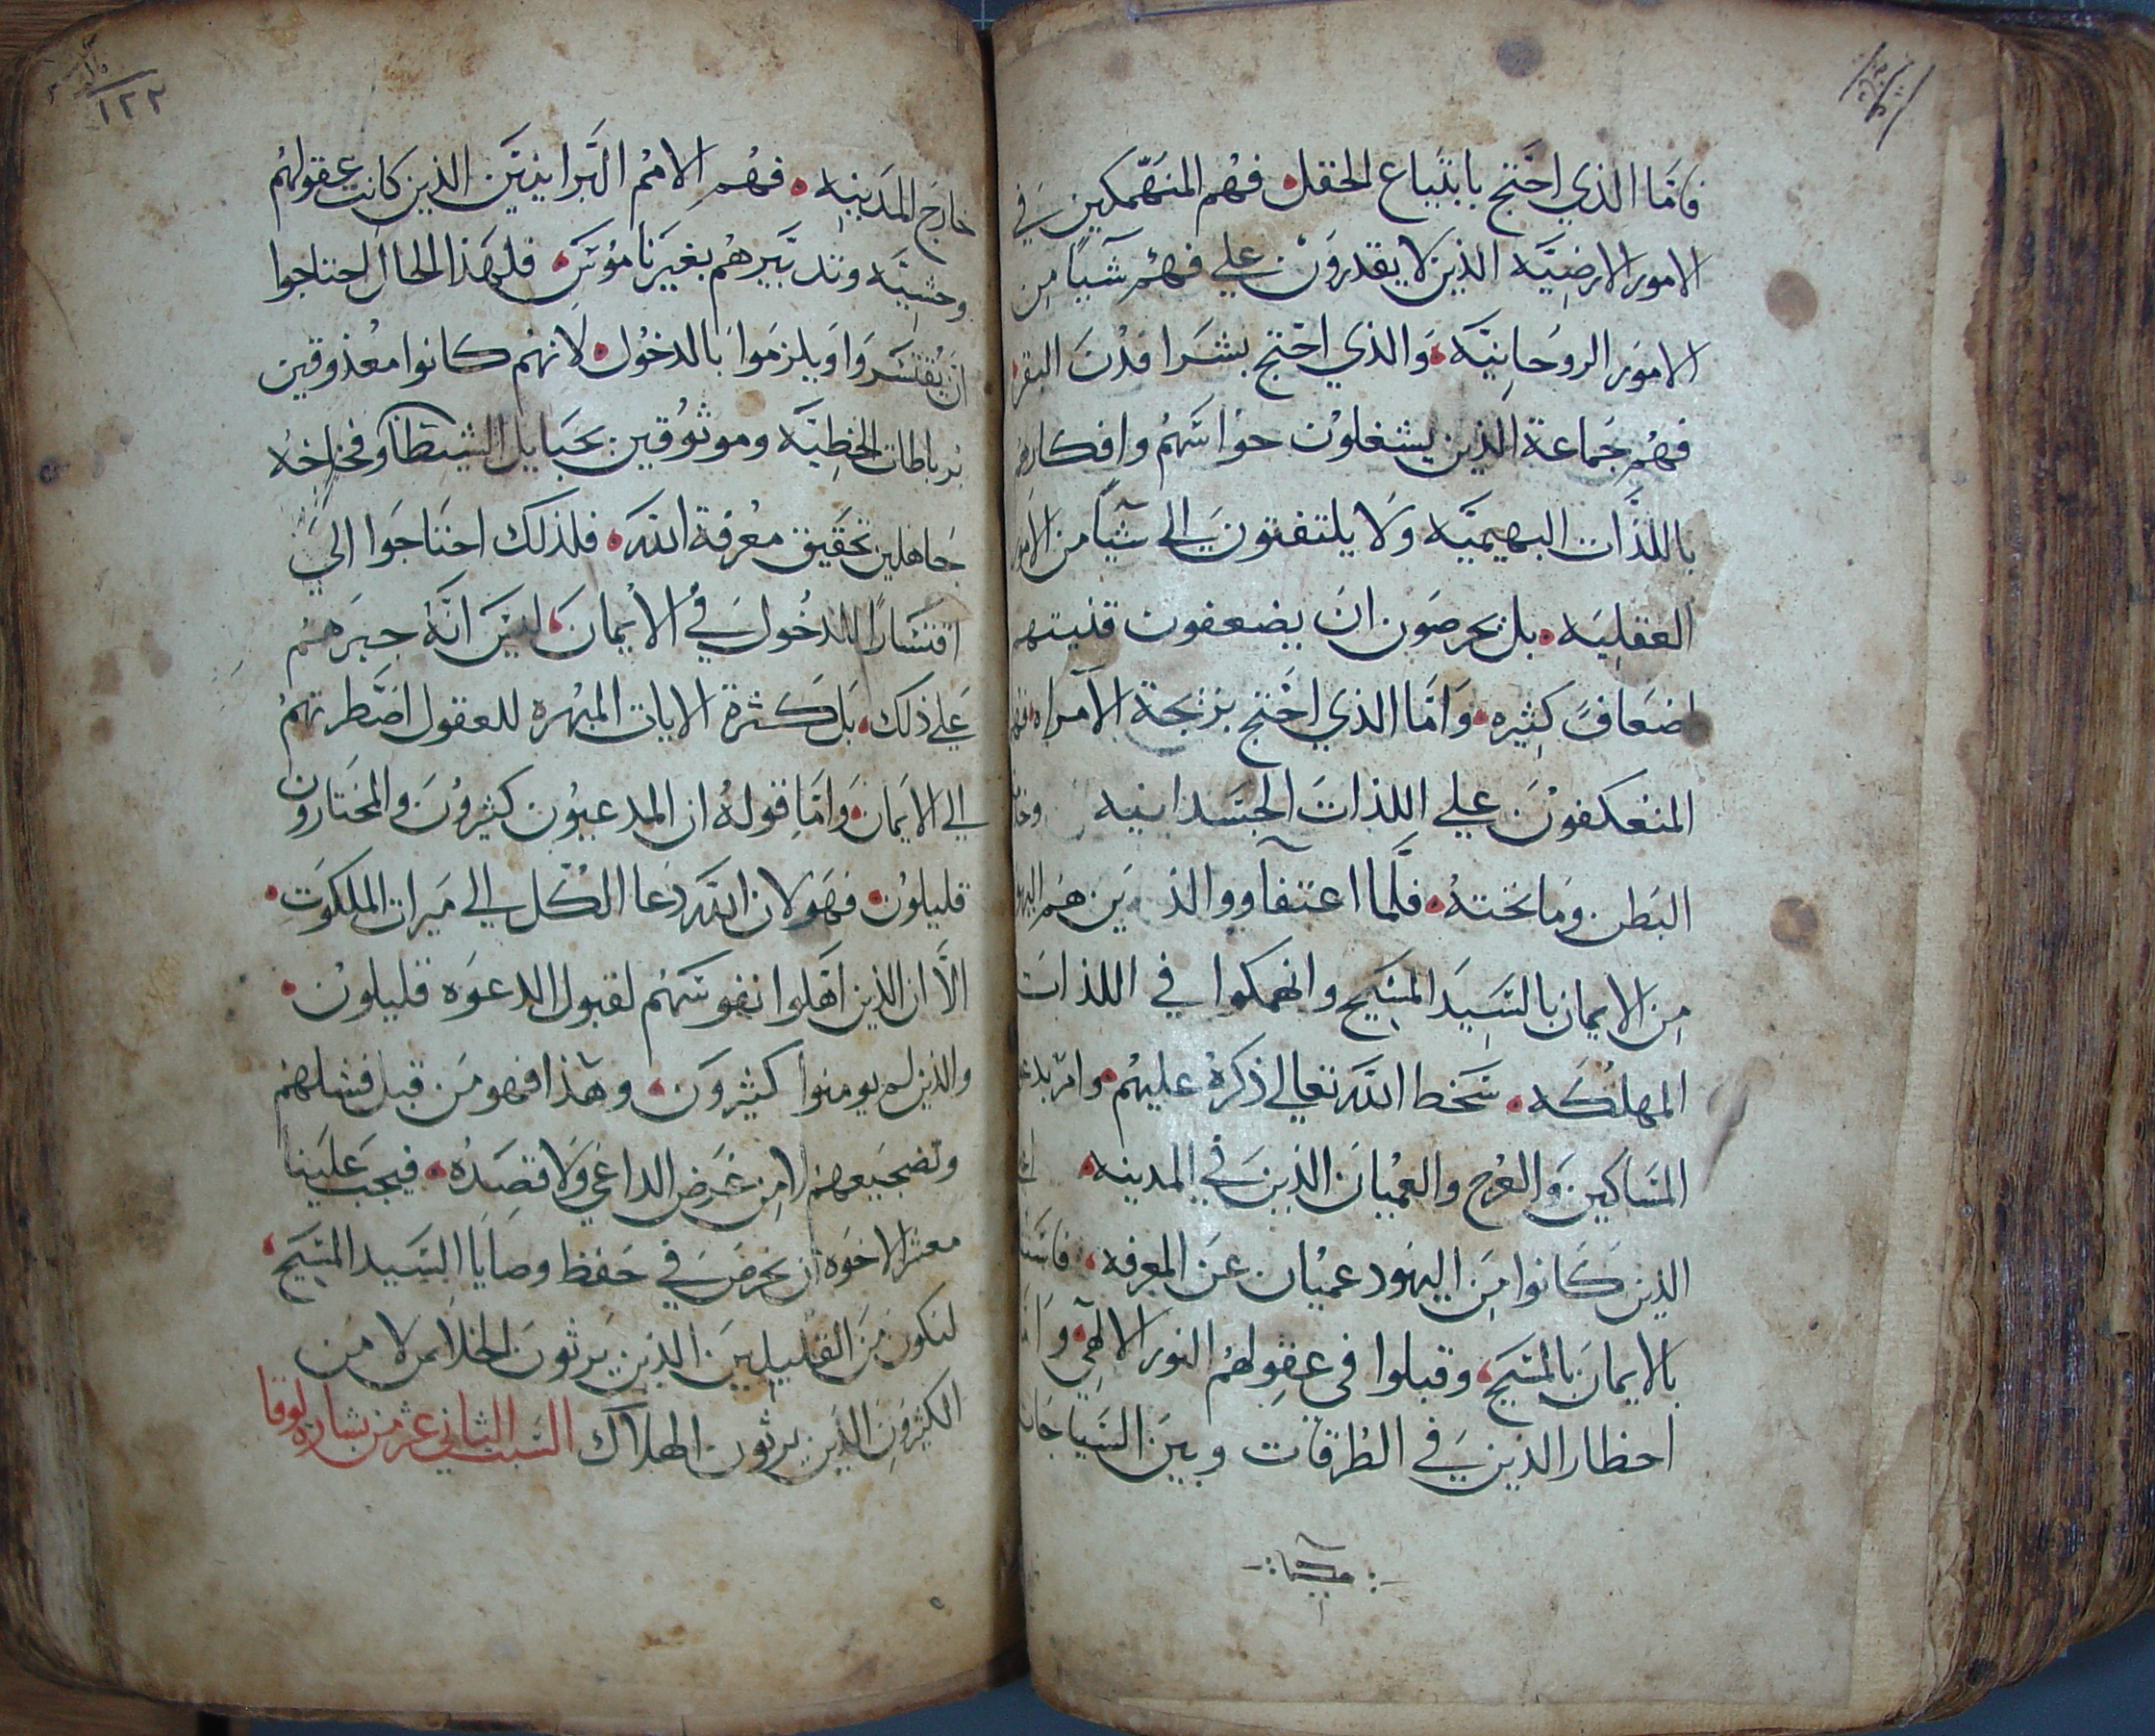 فامّا الذي احتج بابتياع الحقل فهم المنهمكين في
الامور الارضيّه الذين لا يقدرون علي فهم شياً من
الامور الروحانيّه والذي احتج بشرا فدن البقر
فهم جماعة الذين يشغلون حواسهم وافكارهم
باللذّات البهيميّه ولا يلتفتون الي شياً من الامور
العقليه بل يحرصون ان يضعفون قنيتهم
اضعافً كثيره وامّا الذي احتج بزيجة الامراه
المنعكفون علي اللذات الجسدانيه
البطن وما تحته فلّما اعتفاوو الذين هم اليهود
من الايمان بالسيد المسيح وانهمكوا في اللذات
المهلكه سخط الله تعالي ذكره عليهم وامر
المساكين والعرج والعميان الذين في المدينه
الذين كانوا من اليهود عميان عن المعرفه
بالايمان بالمسيح وقبلوا في عقولهم النور الالهي واما
احظار الذين في الطرقات وبين السياجات
١٢٢
خارج المدينه فهم الامم البرانيين الذين كانت عقولهم
وحشيّه وتدبيرهم بغير ناموس فلهذا الحال احتاجوا
ان يقتسروا ويلزموا بالدخول لانهم كانوا معذوقين
برباطات الخطيّه وموثوقين بحبايل الشيطان وفخاخه
جاهلين تحقيق معرفة الله فلذلك احتاجوا الي
اقتسارًا للدخول في الايمان ليس انّه جبرهم
علي ذلك بل كثرة الايات المبهره للعقول اضطرتهم
الي الايمان وامّا قوله ان المدعيون كثيرون والمختارون
قليلون فهو لان الله دعا الكل الي ميرات الملكوت
الّا ان الذين اهّلوا نفوسهم لقبول الدعوه قليلون
والذين لم يومنوا كثيرون وهذا فهو من قبل فشلهم
وتضجيعهم لا من غرض الداعي ولا قصده فيجب علينا
معشر الاخوه ان نحرص في حفظ وصايا السيد المسيح
لنكون من القليلين الذين يرثون الخلاص لا من
الكثيرون الذين يرثون الهلاك السبت الثاني عشر من بشارة لوقا